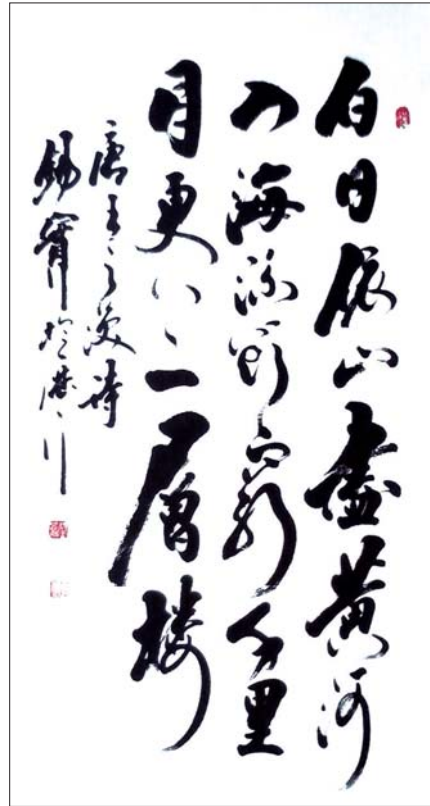 白日依山盡黄河
入海流欲窮千里
目更上一層楼
唐王之渙詩
錫於